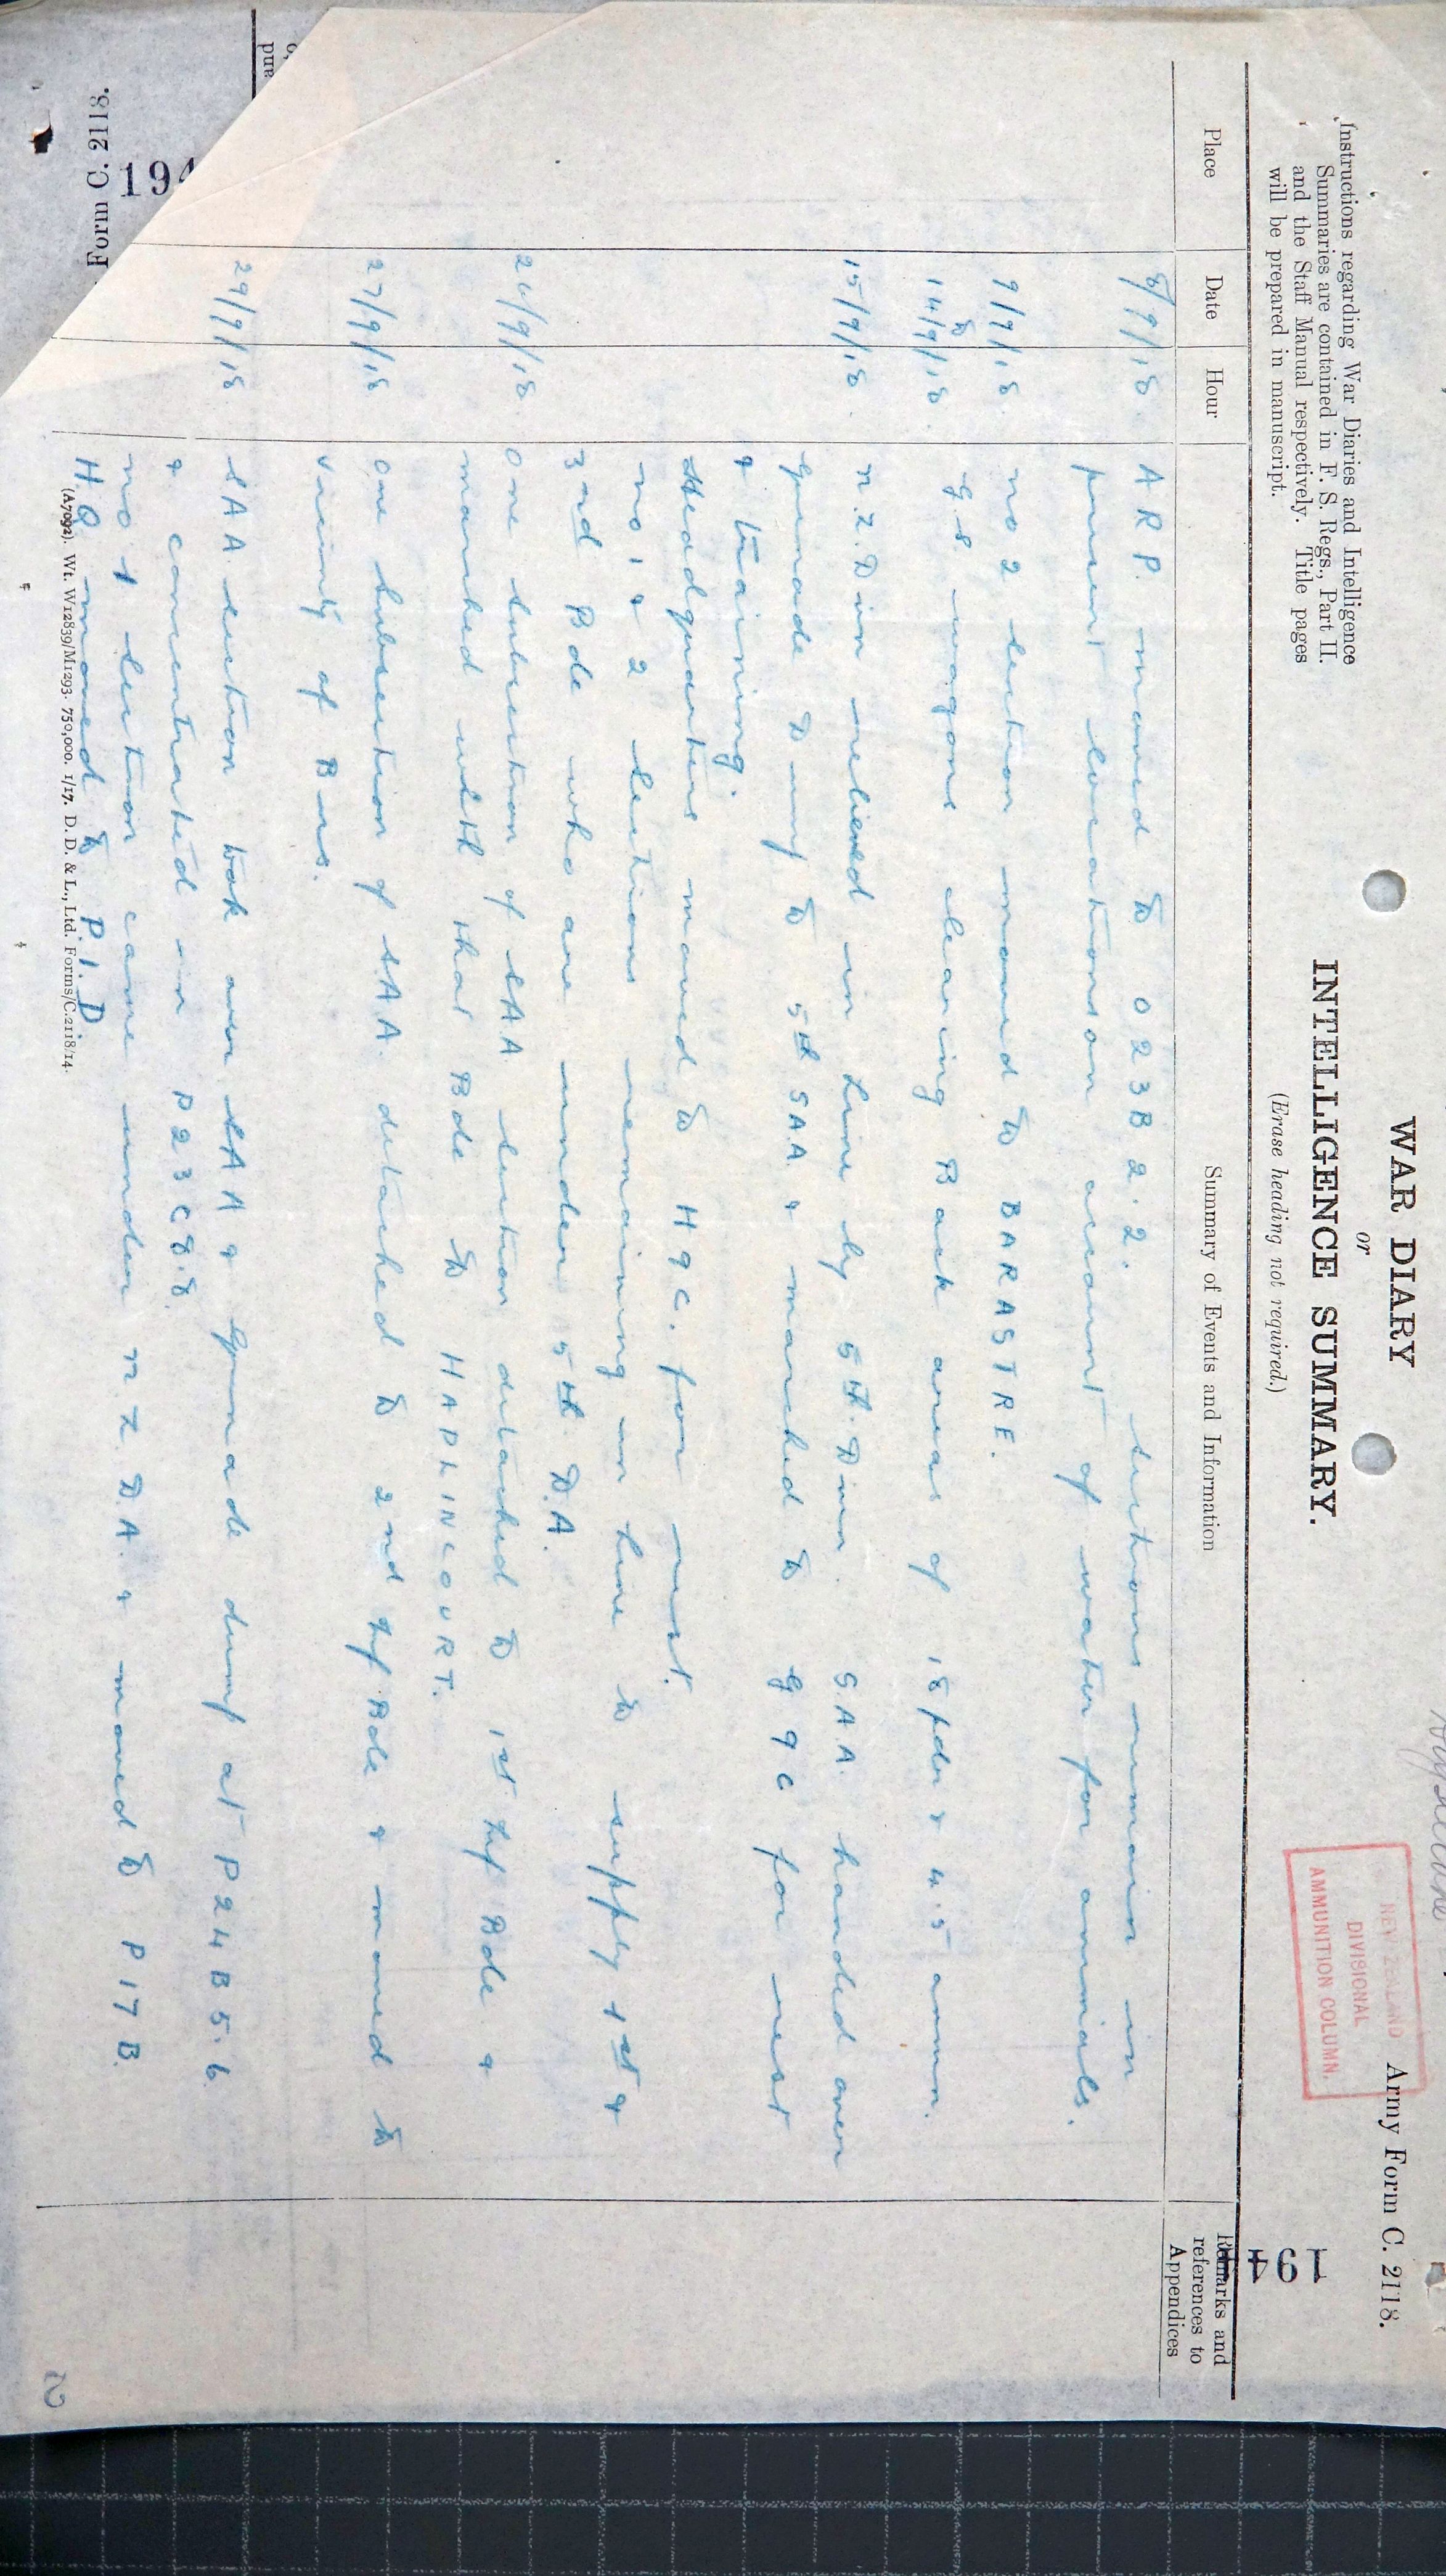 WAR DIARY
or
INTELLIGENCE SUMMARY.
(Erase heading not required.)
Army Form C. 2118.
Instructions regarding War Diaries and Intelligence
Summaries are contained in F. S. Regs., Part II.
and the Staff Manual respectively. Title pages
will be prepared in manuscript.
NEW ZEALAND
DIVISIONAL
AMMUNITION COLUMN.
194
Place Date Hour Summary of Events and Information Remarks and
references to
Appendices
8/9/18 ARP moved to O23B2.2. sections remain in
present locations on account of water for animals.
9/9/18 no 2 section moved to BARASTRE.
to
14/9/18 G.S. wagons clearing Back areas of 18 pder & 4.5 ammn.
15/9/18 N.Z. Divn relieved in line by 5th Divn. S.A.A. handed over
grenade Dump to 5th SAA & marched to G9C for rest
& training.
Headquarters moved to H9C. for rest.
no 1 & 2 sections remaining in line to supply 1st &
3rd Bde who are under 5th D.A.
One subsection of SAA section detached to 1st Inf Bde &
marched with that Bde to HAPLINCOURT.
27/9/18 One subsection of SAA. detached to 2nd Inf Bde & moved to
vicinity of Bus.
29/9/18 SAA section took over SAA & Grenade dump at P24B5.6
& concentrated in P23C8.8.
no 1 section came under NZ D.A. & moved to P17B.
H.Q. moved to P.1.D
(A7092). Wt. W12839/M1293. 750,000. 1/17. D. D. & L., Ltd. Forms/C.2118/14.
Form C. 2118.
194
and
2